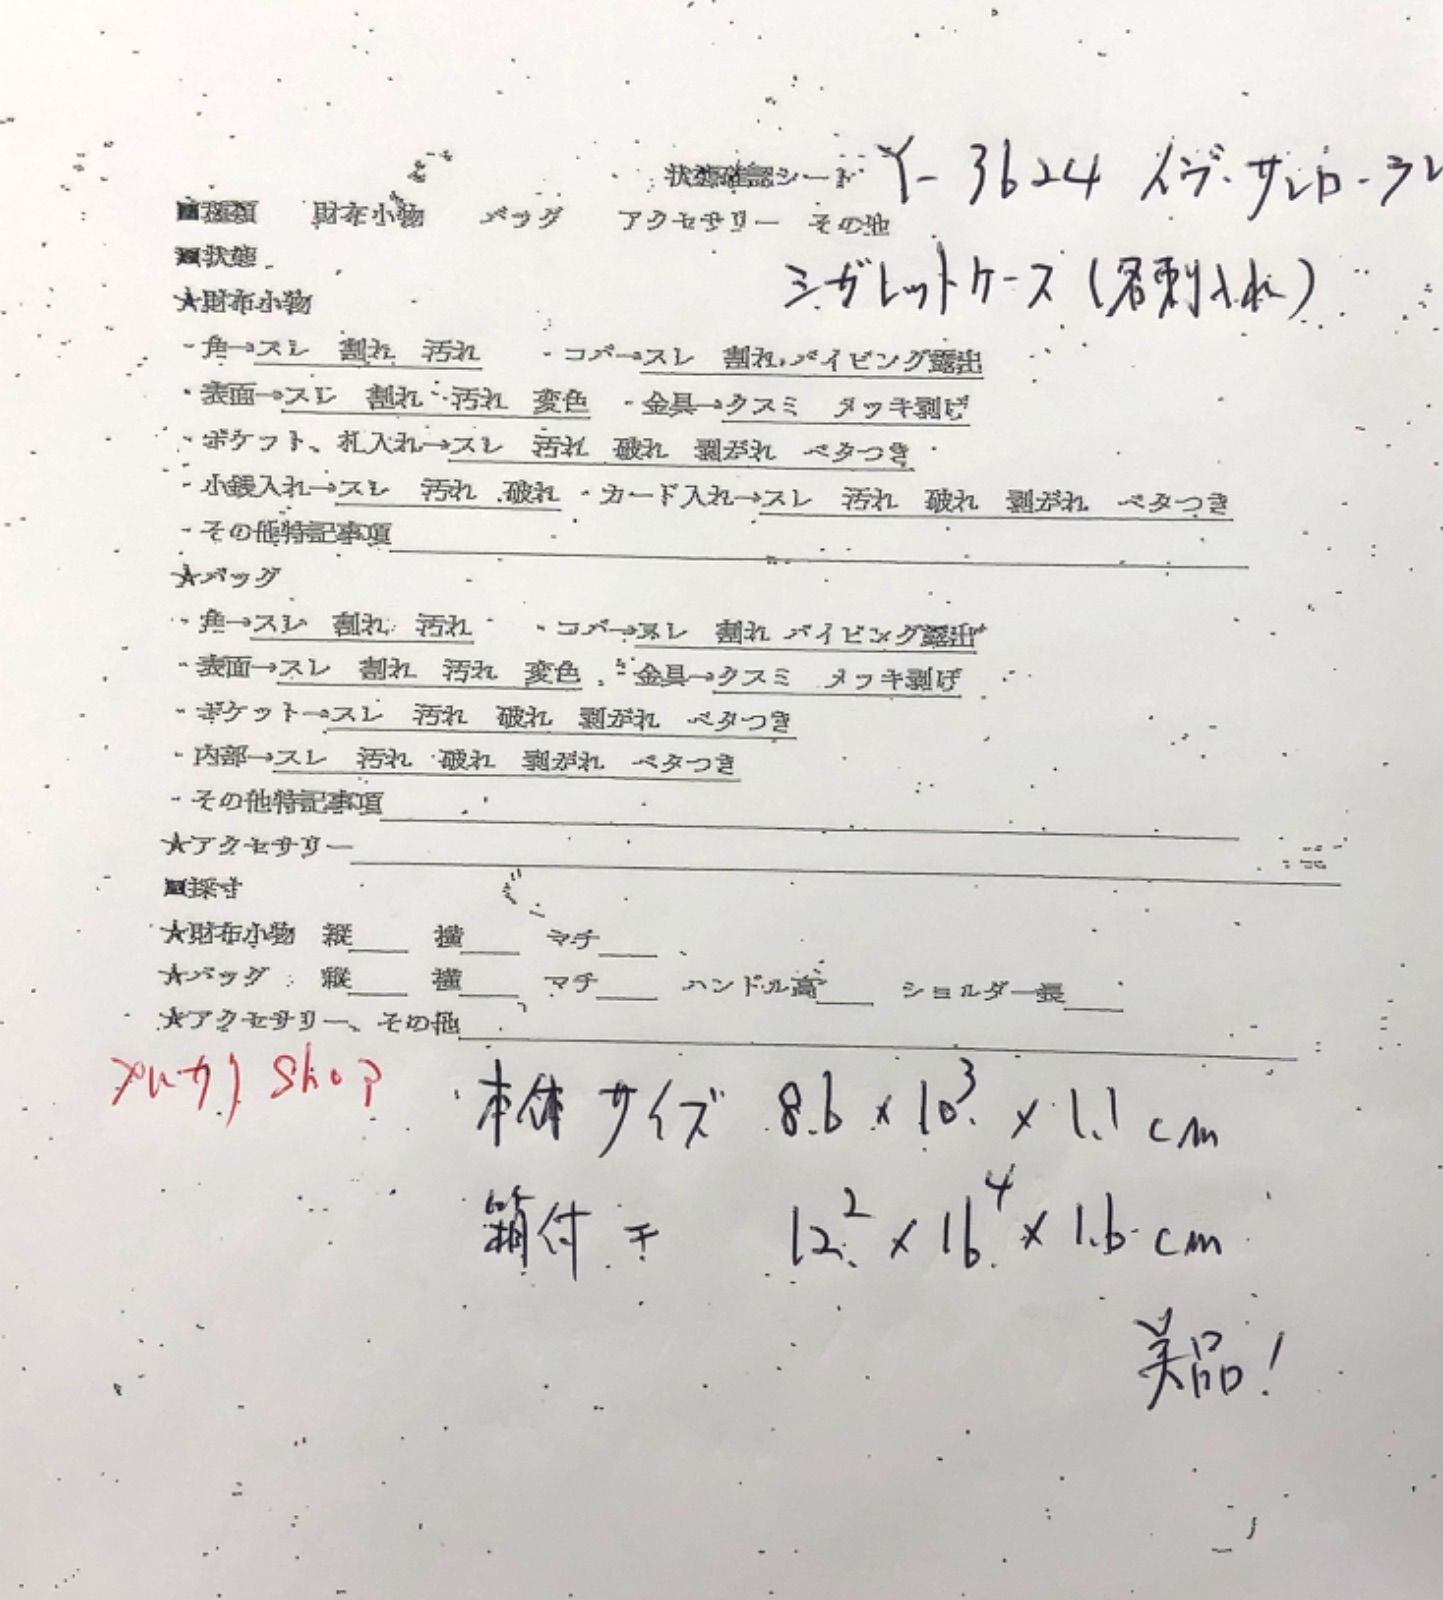 状態確認シート Y-3624 イヴ・サンローラン
■種類 財布小物 バッグ アクセサリー その他
■状態 シガレットケース(名刺入れ)
★財布小物
・角→スレ 割れ 汚れ ・コバ→スレ 割れ パイピング露出
・表面→スレ 割れ 汚れ 変色 ・金具→クスミ メッキ剥げ
・ポケット、札入れ→スレ 汚れ 破れ 剥がれ ベタつき
・小銭入れ→スレ 汚れ 破れ ・カード入れ→スレ 汚れ 破れ 剥がれ ベタつき
・その他特記事項
★バッグ
・角→スレ 割れ 汚れ ・コバ→スレ 割れ パイピング露出
・表面→スレ 割れ 汚れ 変色 ・金具→クスミ メッキ剥げ
・ポケット→スレ 汚れ 破れ 剥がれ ベタつき
・内部→スレ 汚れ 破れ 剥がれ ベタつき
・その他特記事項
★アクセサリー
■採寸
★財布小物 縦 横 マチ
★バッグ 縦 横 マチ ハンドル高 ショルダー長
★アクセサリー、その他
メルカリ Shop 本体サイズ 8.6 × 10.3 × 1.1 cm
箱付 12.2 × 16.4 × 1.6 cm
美品!